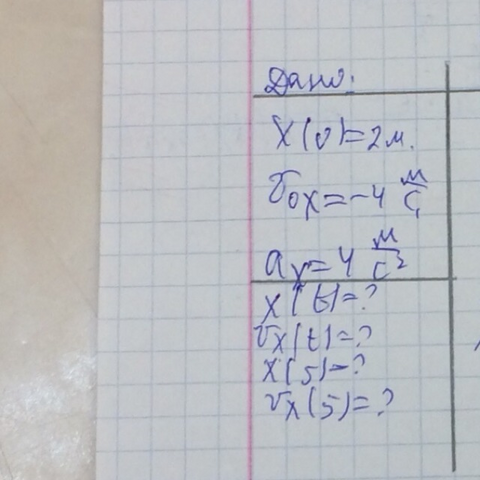 Дано:
x(0)=2м.
v₀ₓ=-4 м/с
aₓ=4 м/с²
x(t)=?
vₓ(t)=?
x(5)=?
vₓ(5)=?